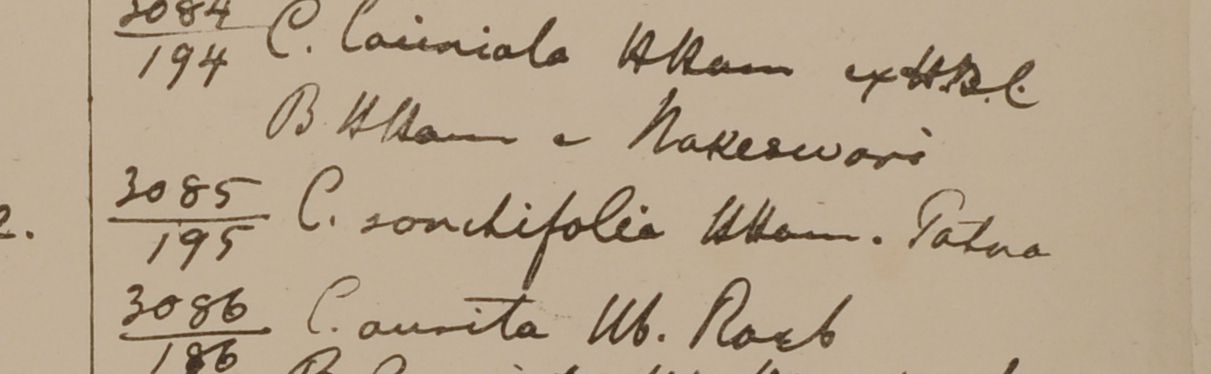 3084
194 C. laciniala HHam ex H.B.C.
B HHam e Nakeswari
2.
3085
195 C. sonchifolia HHam. Patna
3086
186 C. aurita Hb. Roxb